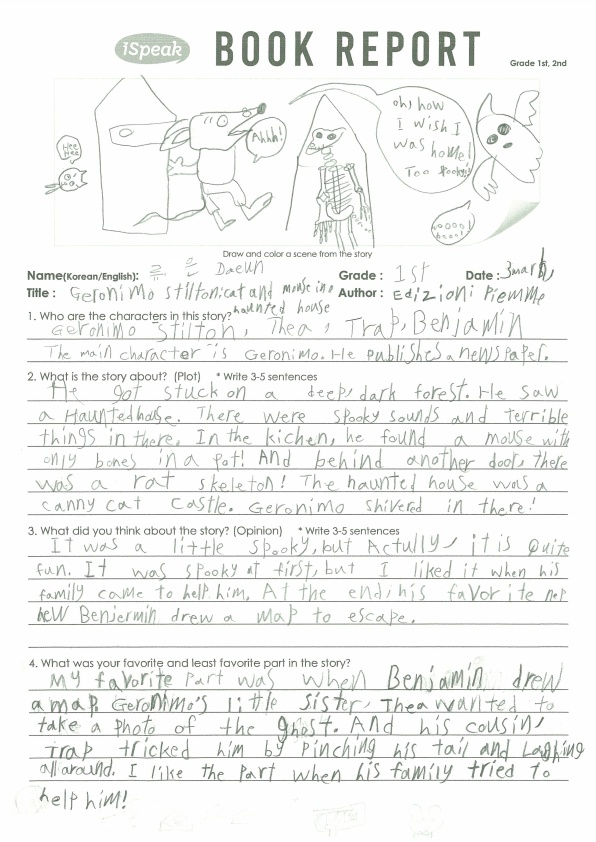 iSpeak BOOK REPORT
Grade 1st, 2nd
Hee Hee
Ahhh!
oh, how
I wish I
was home!
Too spooky!
Draw and color a scene from the story
Name(Korean/English): Daeun Grade : 1st Date : 3 march
Title : Geronimo stilton:cat and mouse in a haunted house Author : Edizioni Piemme
1. Who are the characters in this story?
Geronimo Stilton, Thea, Trap, Benjamin
The main character is Geronimo. He publishes a newspaper.
2. What is the story about? (Plot) * Write 3-5 sentences
He got stuck on a deep, dark forest. He saw
a Haunted house. There were spooky sounds and terrible
things in there. In the kichen, he found a mouse with
only bones in a pot! And behind another door, there
was a rat skeleton! The haunted house was a
canny cat castle. Geronimo shivered in there!
3. What did you think about the story? (Opinion) * Write 3-5 sentences
It was a little spooky, but Actully, it is quite
fun. It was spooky at first, but I liked it when his
family came to help him. At the end, his favorite nep
hew Benjermin drew a map to escape.
4. What was your favorite and least favorite part in the story?
My favorite part was when Benjamin drew
a map. Geronimo's little sister, Thea wanted to
take a photo of the ghost. And his cousin,
Trap tricked him by pinching his tail and Laghing
all around. I like the part when his family tried to
help him!